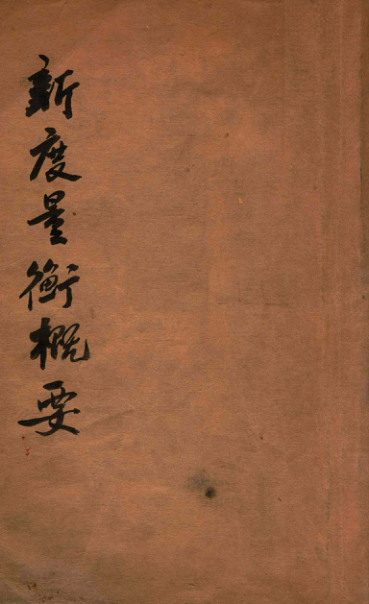 新度量衡概要